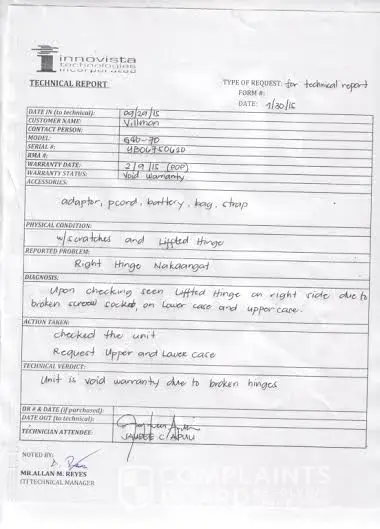 innovista
technologies
incorporated
TECHNICAL REPORT
TYPE OF REQUEST: for technical report
FORM #:
DATE: 9/30/15
DATE IN (to technical): 09/29/15
CUSTOMER NAME: Villman
CONTACT PERSON:
MODEL: G40-70
SERIAL #: YB06750620
RMA #:
WARRANTY DATE: 2/9/15 (POP)
WARRANTY STATUS: Void warranty
ACCESSORIES:
adaptor, pcord, battery, bag, strap
PHYSICAL CONDITION:
w/scratches and Liffted Hinge
REPORTED PROBLEM:
Right Hinge Nakaangat
DIAGNOSIS:
Upon checking seen Liffted Hinge on right side due to
broken screw socket, on Lower case and upper case.
ACTION TAKEN:
checked the unit
Request Upper and Lower case
TECHNICAL VERDICT:
Unit is void warranty due to broken hinges
DR # & DATE (if purchased):
DATE OUT (to technical):
TECHNICIAN ATTENDEE: JAYDEE C. APULI
NOTED BY:
MR.ALLAN M. REYES
ITI TECHNICAL MANAGER
COMPLAINTS
BOARD